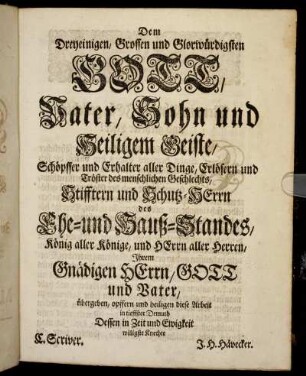 Dem
Dreyeinigen, Grossen und Glorwürdigsten
GOTT,
Vater, Sohn und
Heiligem Geiste,
Schöpffer und Erhalter aller Dinge, Erlösern und
Tröster des menschlichen Geschlechts,
Stifftern und Schutz-HErrn
des
Ehe- und Hauß-Standes,
König aller Könige, und HErrn aller Herren,
Ihrem
Gnädigen HErrn, GOTT
und Vater,
übergeben, opffern und heiligen diese Arbeit
in tieffster Demuth
Dessen in Zeit und Ewigkeit
willigste Knechte
C. Scriver. J. H. Hävecker.